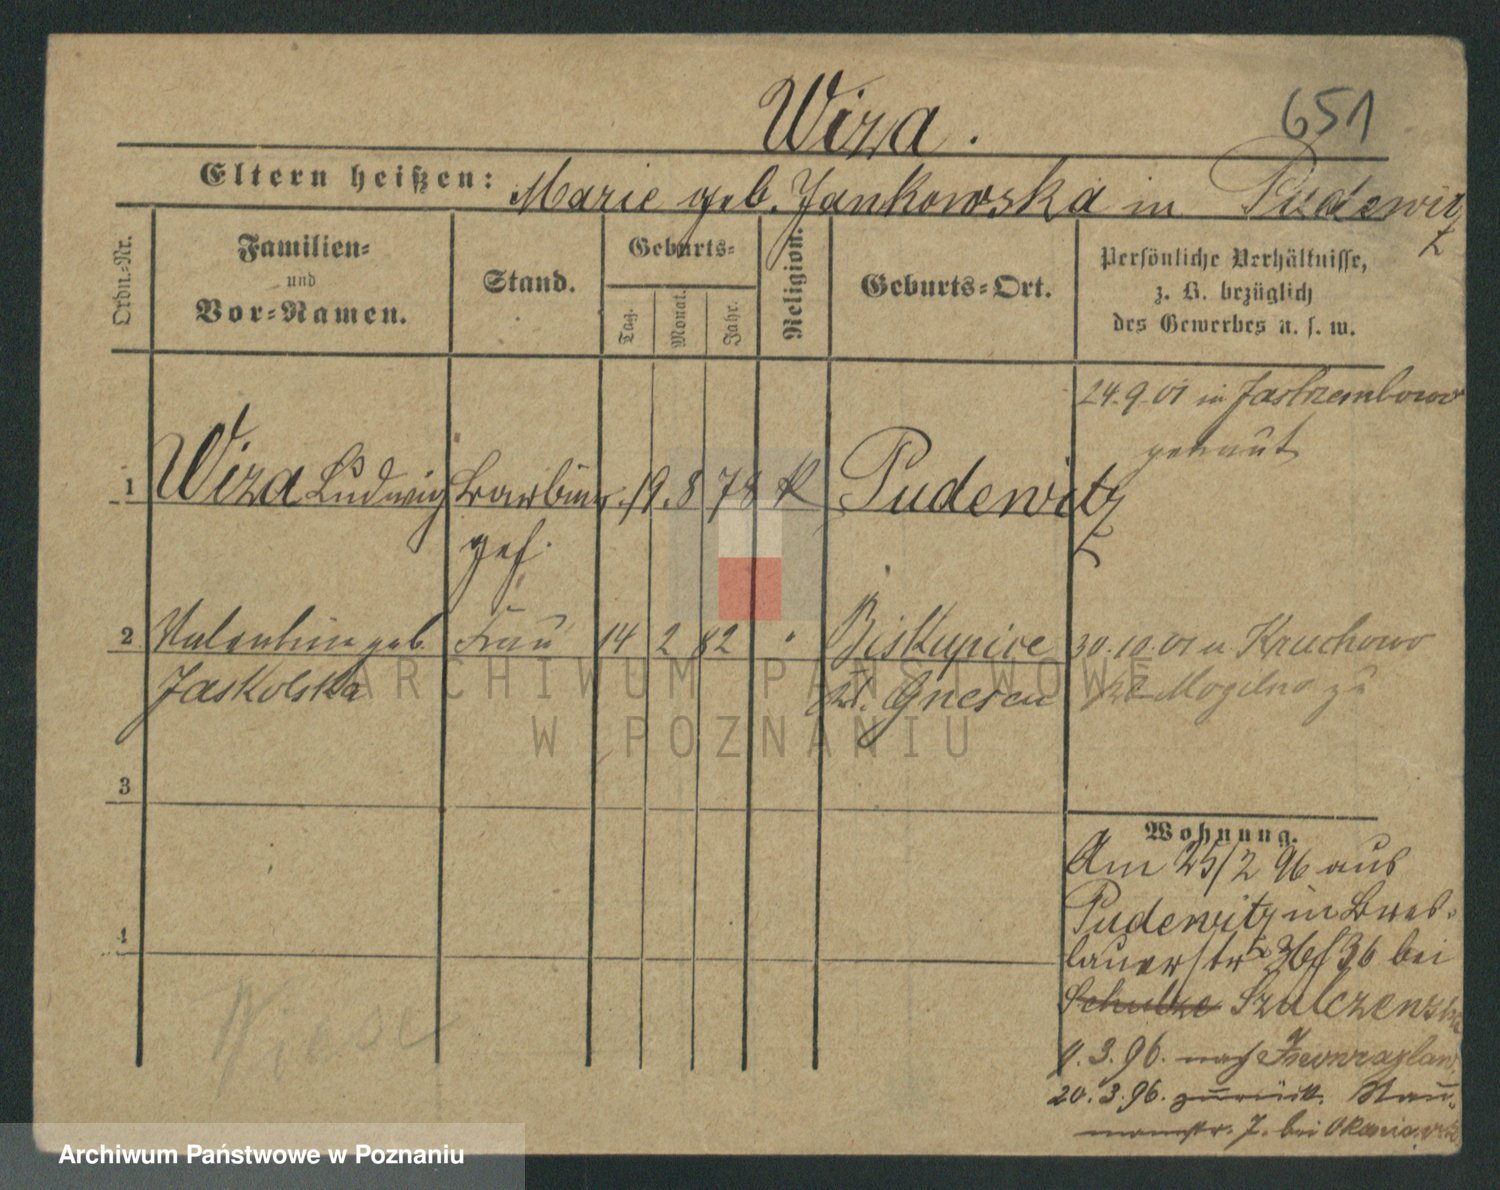 651
Wiza.
Eltern heißen: Marie geb. Jankowska in Pudewitz
Ordn.-Nr.
Familien-
und
Vor-Namen.
Stand.
Geburts-
Tag.
Monat.
Jahr.
Religion.
Geburts-Ort.
Persönliche Verhältnisse,
z. B. bezüglich
des Gewerbes u. s. w.
24.9.01 in Jastrzembowo
getraut
1 Wiza Ludwig Barbier 19. 8 78 K Pudewitz
geh.
2 Valentine geb. Frau 14 2 82 " Biskupice 30.10.01 n Kruchowo
Jaskolska Kr. Gnesen Kr Mogilno zu
ARCHIWUM PAŃSTWOWE
W POZNANIU
3
Wohnung.
Am 25/2 96 aus
Pudewitz in Bres-
4
lauerstr 36 bei
Schulze Szulczewski
9.3.96. nach Inowrazlaw
20.3.96. zurück. Nau-
mannstr. 7. bei
Wiese
Archiwum Państwowe w Poznaniu